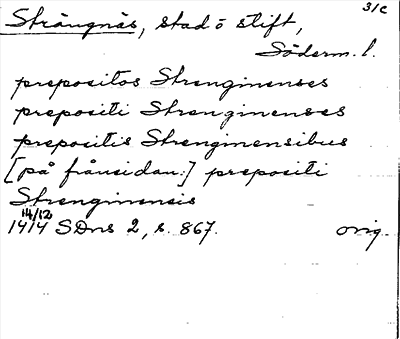 31c
Strängnäs, stad o stift,
Söderm. l.
prepositos Strenginenses
prepositi Strenginenses
prepositis Strenginensibus
[på frånsidan:] prepositi
Strenginensis
14/12
1414 SDns 2, s. 867. orig.